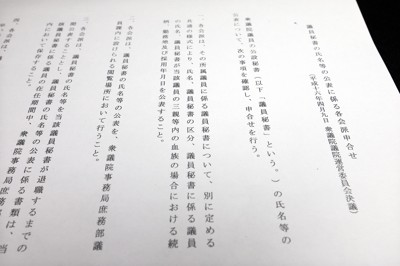 議員秘書の氏名等の公表に係る各会派申合せ
（平成十六年四月九日 衆議院議院運営委員会決議）
衆議院議員の公設秘書（以下「議員秘書」という。）の氏名等の
公表について、次の事項を確認し、申合せを行う。
一、各会派は、その所属議員に係る議員秘書について、別に定める
共通の様式により、氏名、議員秘書の区分、議員秘書に係る議員
の氏名、議員秘書が当該議員の三親等内の血族の場合における続
柄、勤務地及び採用年月日を公表すること。
二、各会派は、議員秘書の氏名等の公表を、衆議院事務局庶務部議
員課内に設けられる閲覧場所において行うこと。
三、各会派は、議員秘書の氏名等を当該議員秘書が退職するまでの
間公表することとし、議員秘書の氏名等の公表に係る書類は、当
議員の在任期間中、衆議院事務局庶務部
において、保存すること。
四、各会派は、